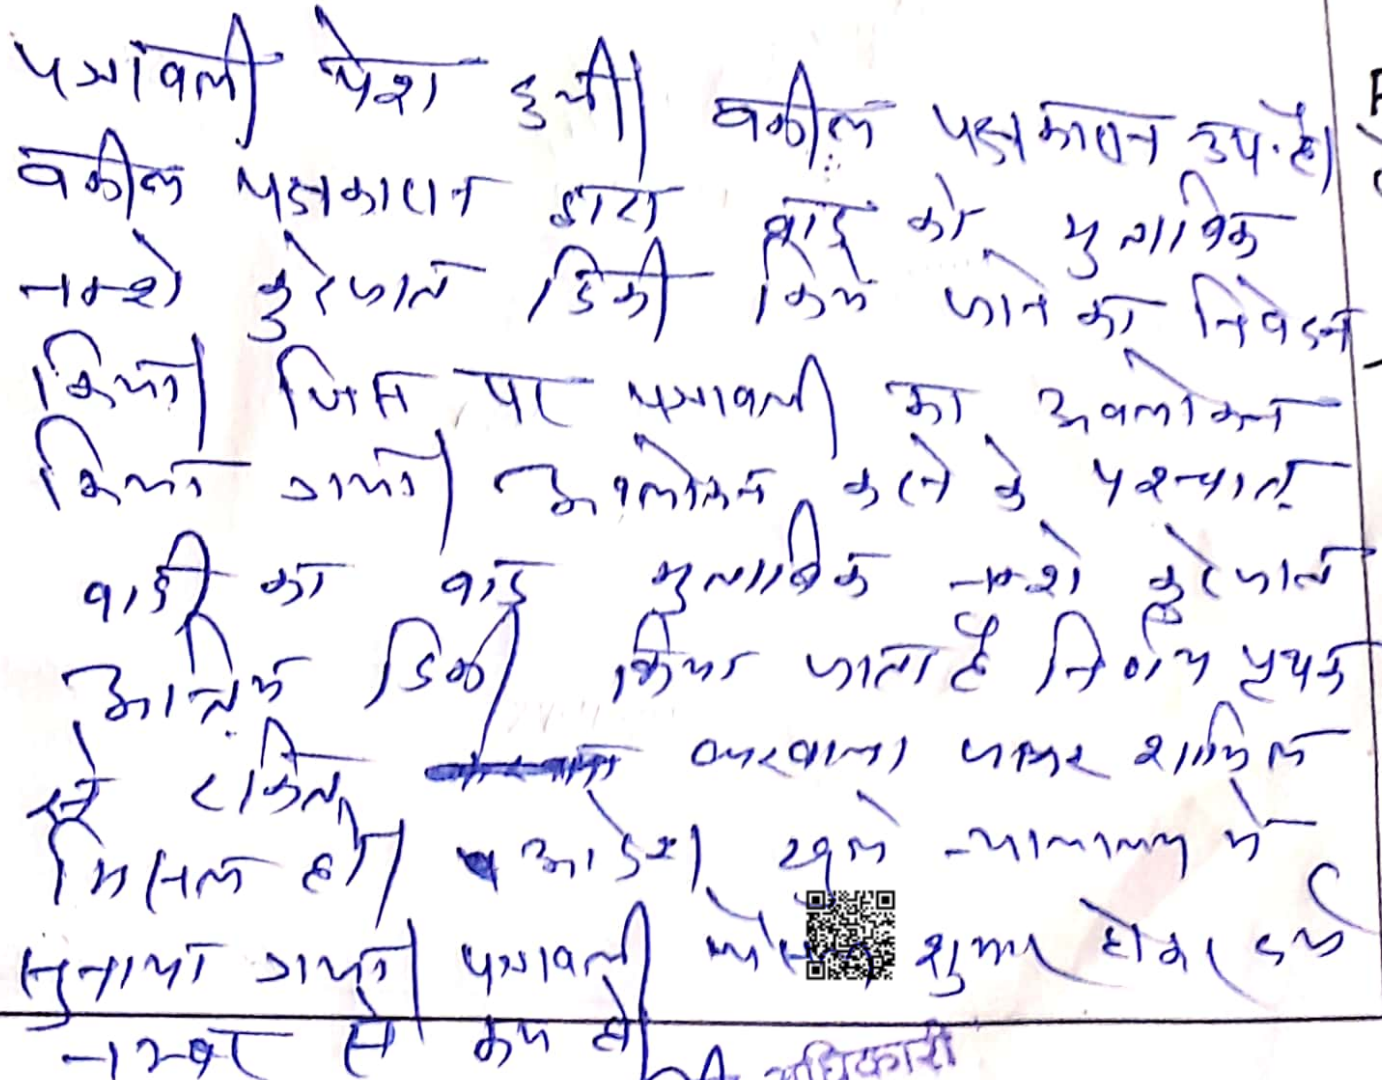 पत्रावली पेश हुयी। वकील पक्षकारान उप. है।
वकील पक्षकारान द्वारा वाद को मुताबिक
नक्शे कुरेजात डिक्री किये जाने का निवेदन
किया। जिस पर पत्रावली का अवलोकन
किया गया। अवलोकन करने के पश्चात्
वादी का वाद मुताबिक नक्शे कुरेजात
अन्तिम डिक्री किया जाता है निर्णय पृथक
से टंकित करवाया जाकर शामिल
मिसल हो। आदेश खुले न्यायालय मे
सुनाया गया। पत्रावली शुमार होकर दर्ज
नम्बर से कम हो।
अधिकारी